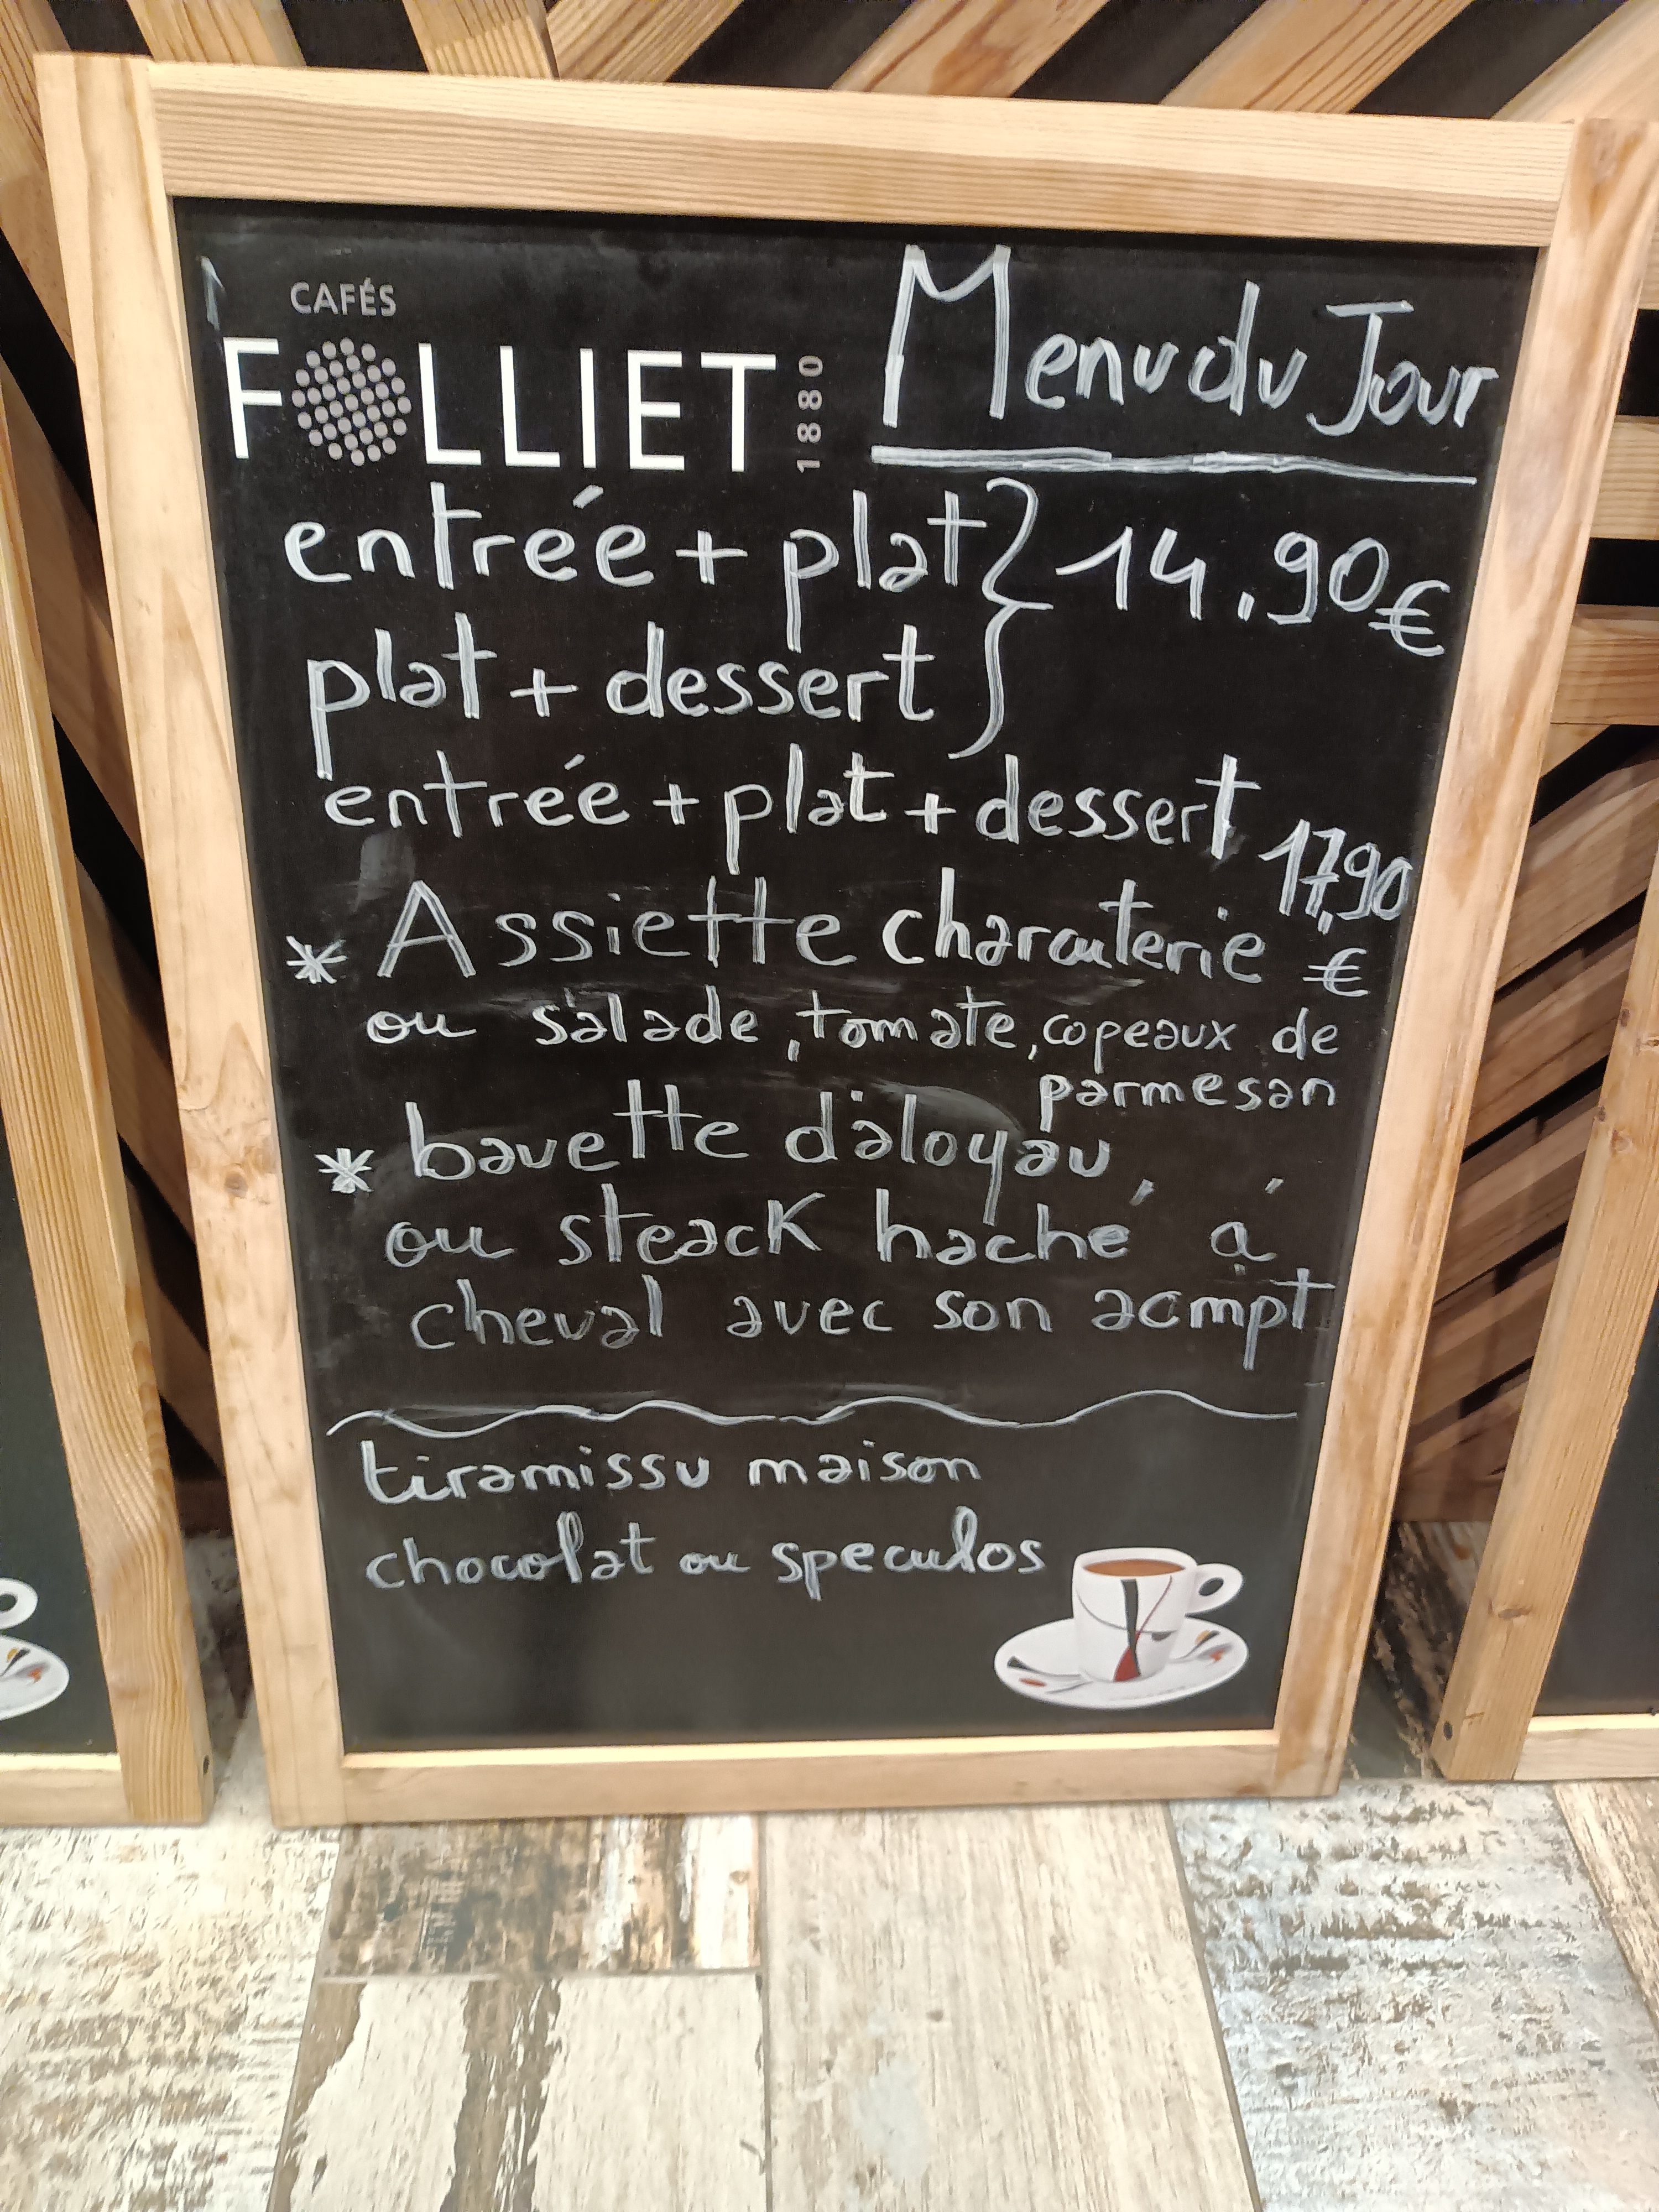 CAFÉS
FOLLIET 1880
Menu du Jour
entrée + plat } 14.90€
plat + dessert
entrée + plat + dessert 17,90 €
* Assiette charcuterie
ou salade, tomate, copeaux de
parmesan
* bavette d'aloyau,
ou steack haché á
cheval avec son acmpt
tiramissu maison
chocolat ou speculos